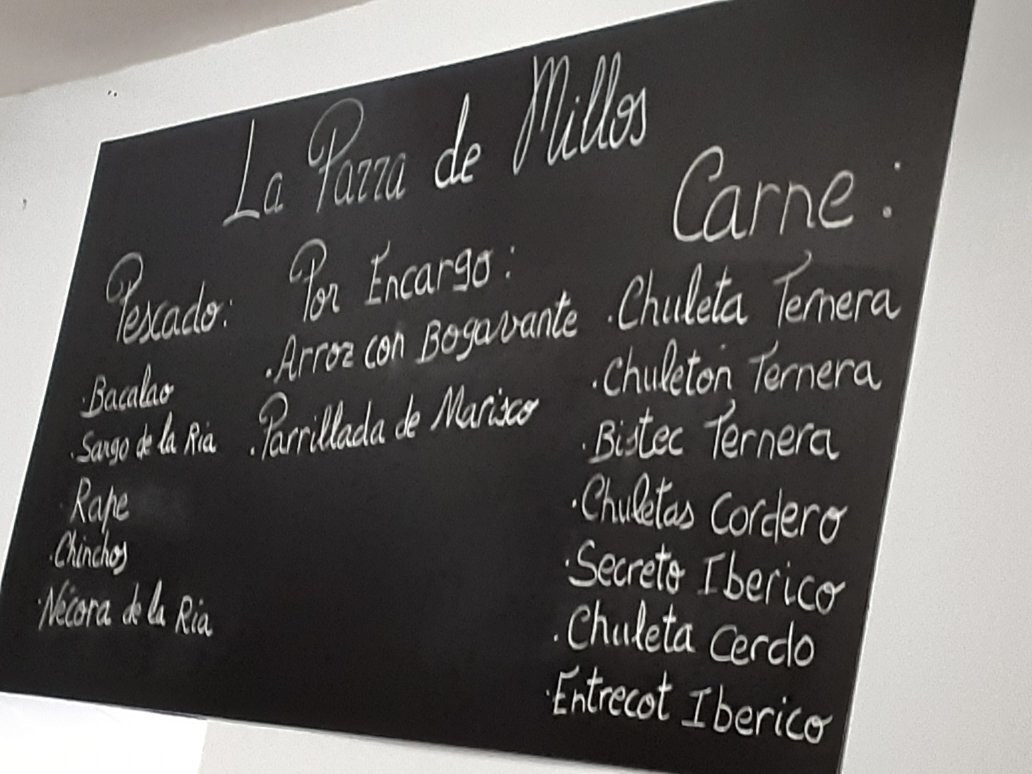 La Parra de Millos
Pescado:
.Bacalao
.Sargo de la Ria
Rape
.Chinchos
.Nécora de la Ria
Por Encargo:
.Arroz con Bogavante
.Parrillada de Marisco
Carne:
.Chuleta Ternera
.Chuletón Ternera
.Bistec Ternera
.Chuletas Cordero
.Secreto Iberico
.Chuleta Cerdo
.Entrecot Iberico